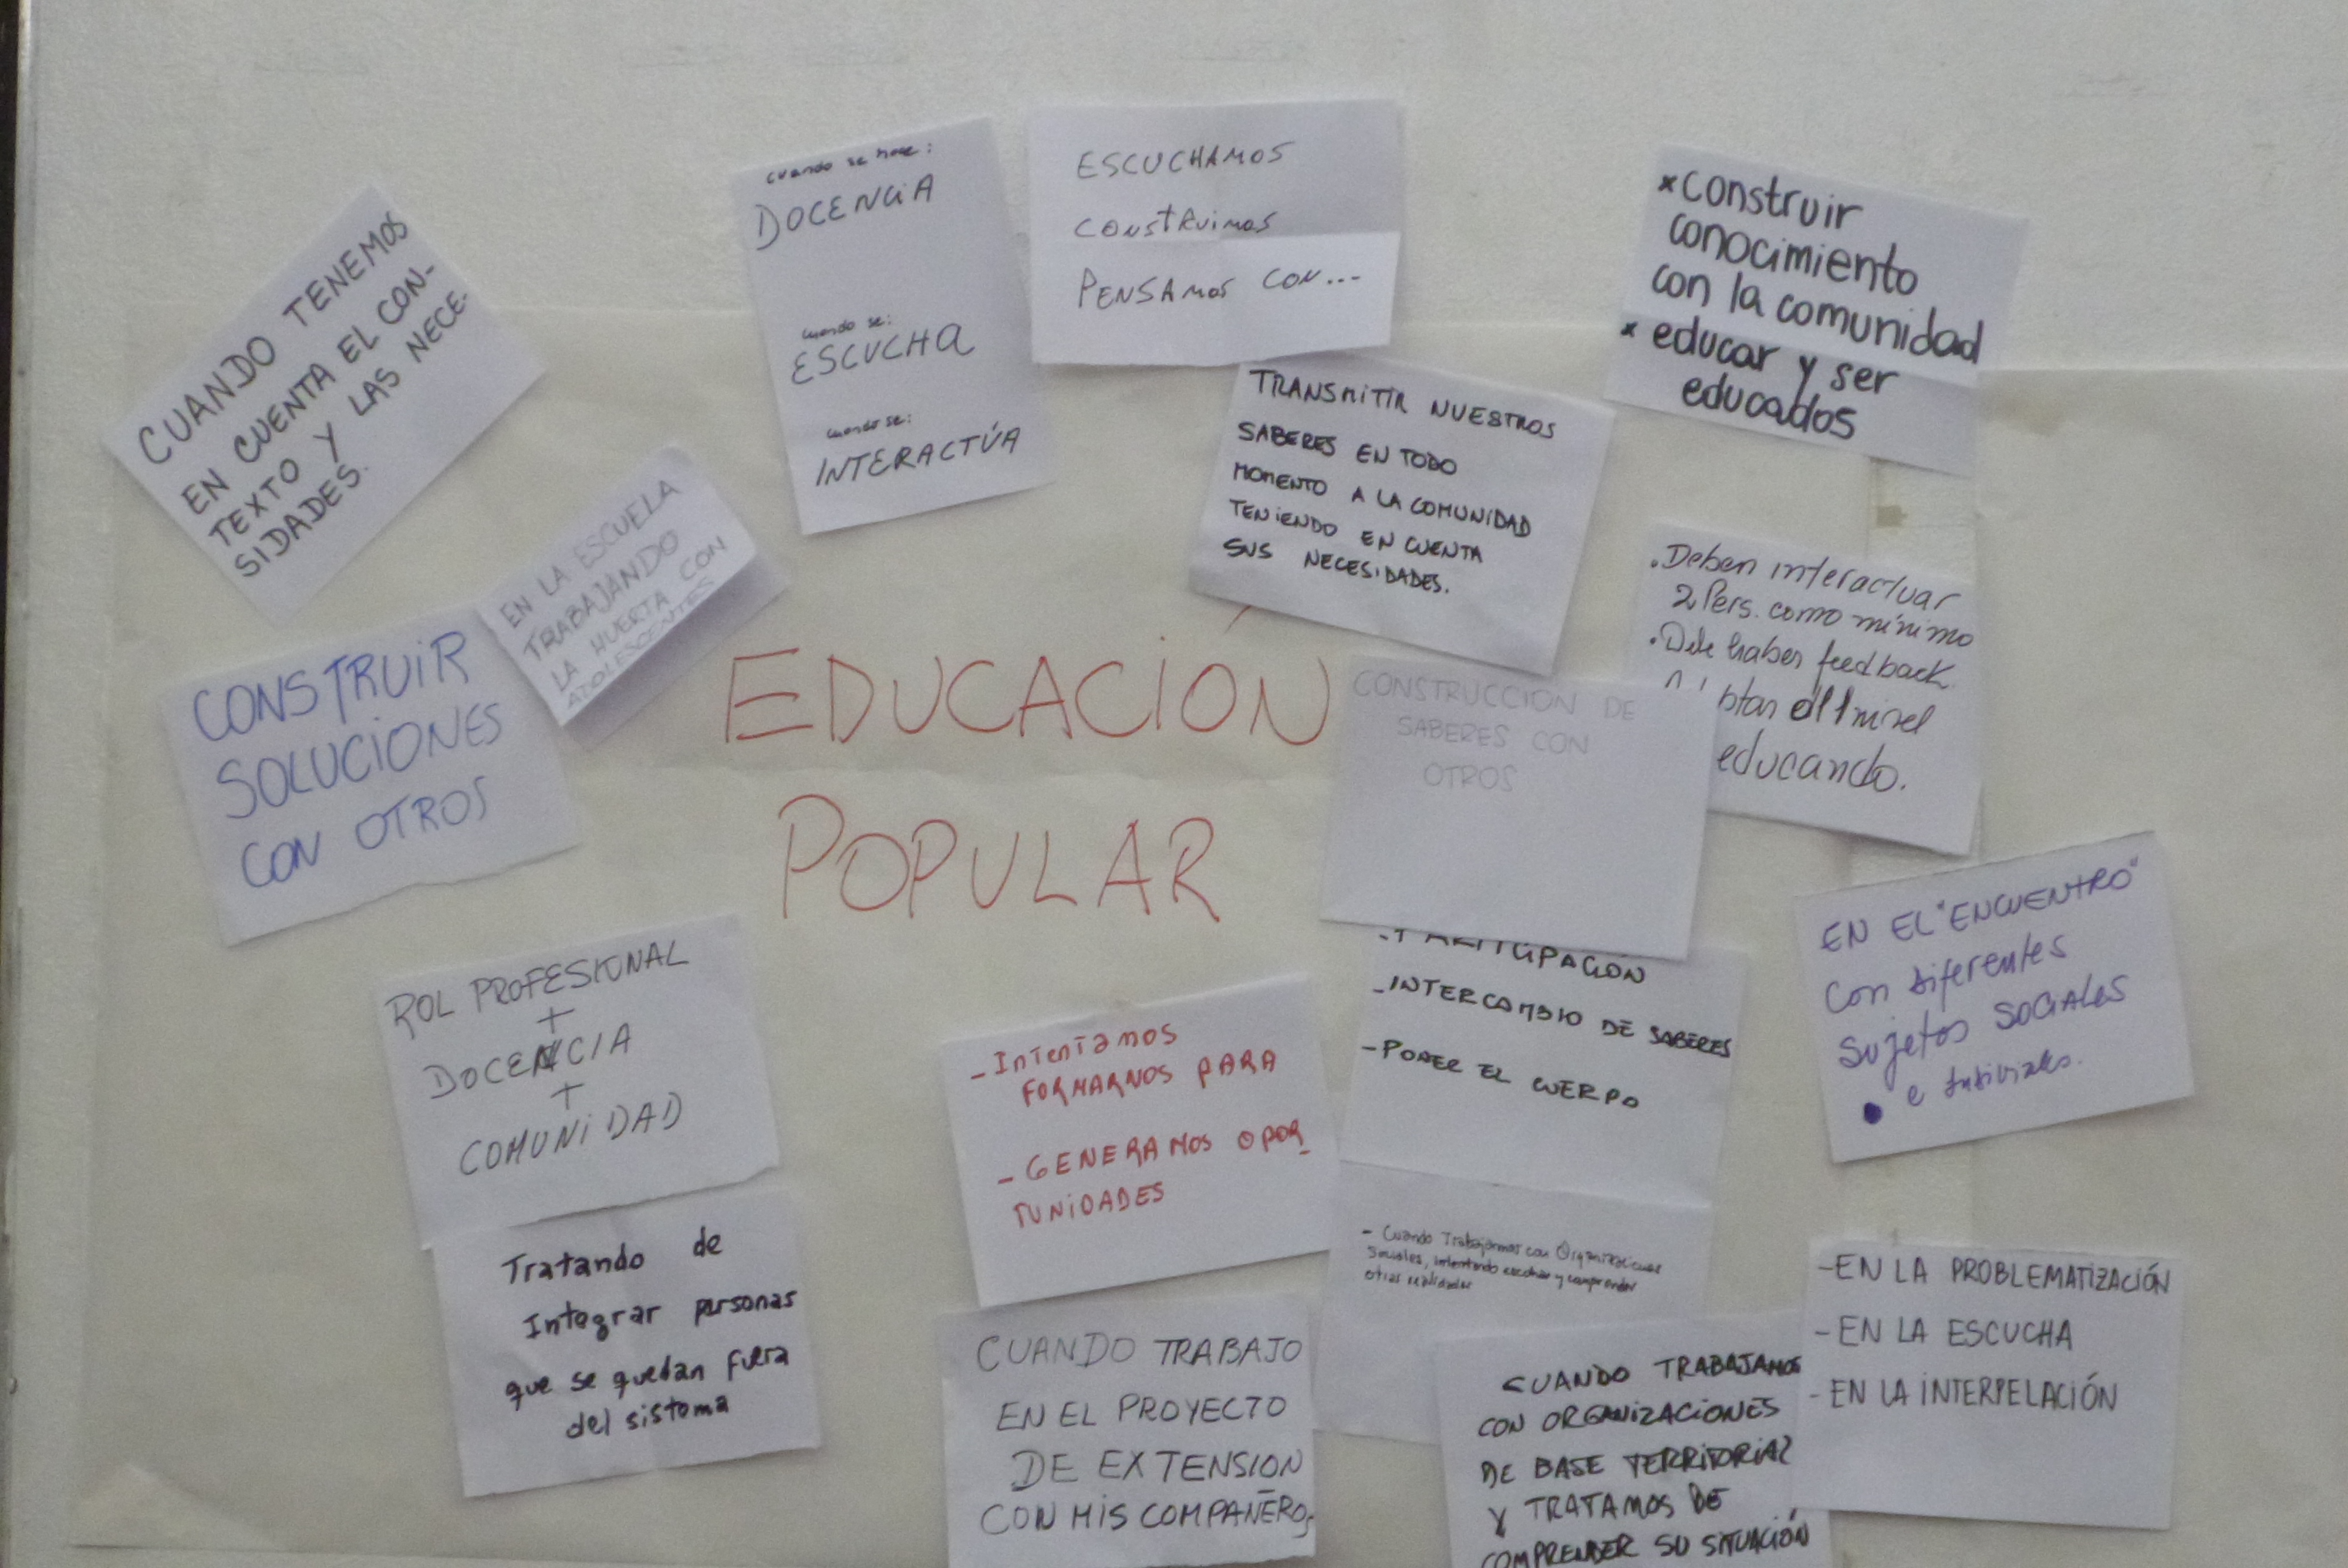 CUANDO TENEMOS
EN CUENTA EL CON-
TEXTO Y LAS NECE-
SIDADES.
cuando se hace:
DOCENCIA
cuando se:
ESCUCHA
cuando se:
INTERACTÚA
ESCUCHAMOS
CONSTRUIMOS
PENSAMOS CON...
* construir
conocimiento
con la comunidad
* educar y ser
educados
TRANSMITIR NUESTROS
SABERES EN TODO
MOMENTO A LA COMUNIDAD
TENIENDO EN CUENTA
SUS NECESIDADES.
EN LA ESCUELA
TRABAJANDO
LA HUERTA CON
ADOLESCENTES
. Deben interactuar
2 Pers. como mínimo
. Debe haber feedback
al nivel
educando.
CONSTRUIR
SOLUCIONES
CON OTROS
EDUCACIÓN
POPULAR
CONSTRUCCION DE
SABERES CON
OTROS
EN EL "ENCUENTRO"
con diferentes
sujetos sociales
e
ROL PROFESIONAL
+
DOCENCIA
+
COMUNIDAD
- PARTICIPACIÓN
- INTERCAMBIO DE SABERES
- PONER EL CUERPO
- Intentamos
FORMARNOS PARA
- GENERAMOS OPOR
TUNIDADES
Tratando de
Integrar personas
que se quedan fuera
del sistema
- Cuando Trabajamos con Organizaciones
Sociales, intentando escuchar y comprender
otras realidades
-EN LA PROBLEMATIZACIÓN
-EN LA ESCUCHA
-EN LA INTERPELACIÓN
CUANDO TRABAJO
EN EL PROYECTO
DE EXTENSION
CON MIS COMPAÑEROS
CUANDO TRABAJAMOS
CON ORGANIZACIONES
DE BASE TERRITORIAL
Y TRATAMOS DE
COMPRENDER SU SITUACIÓN